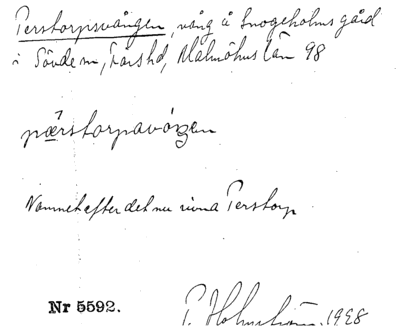 Perstorpsvången, vång å Snogeholms gård
i Sövde sn, Färs hd, Malmöhus län 98
pärstorpavåŋen
Namnet efter det nu rivna Perstorp
Nr 5592.
P. Holmström, 1928